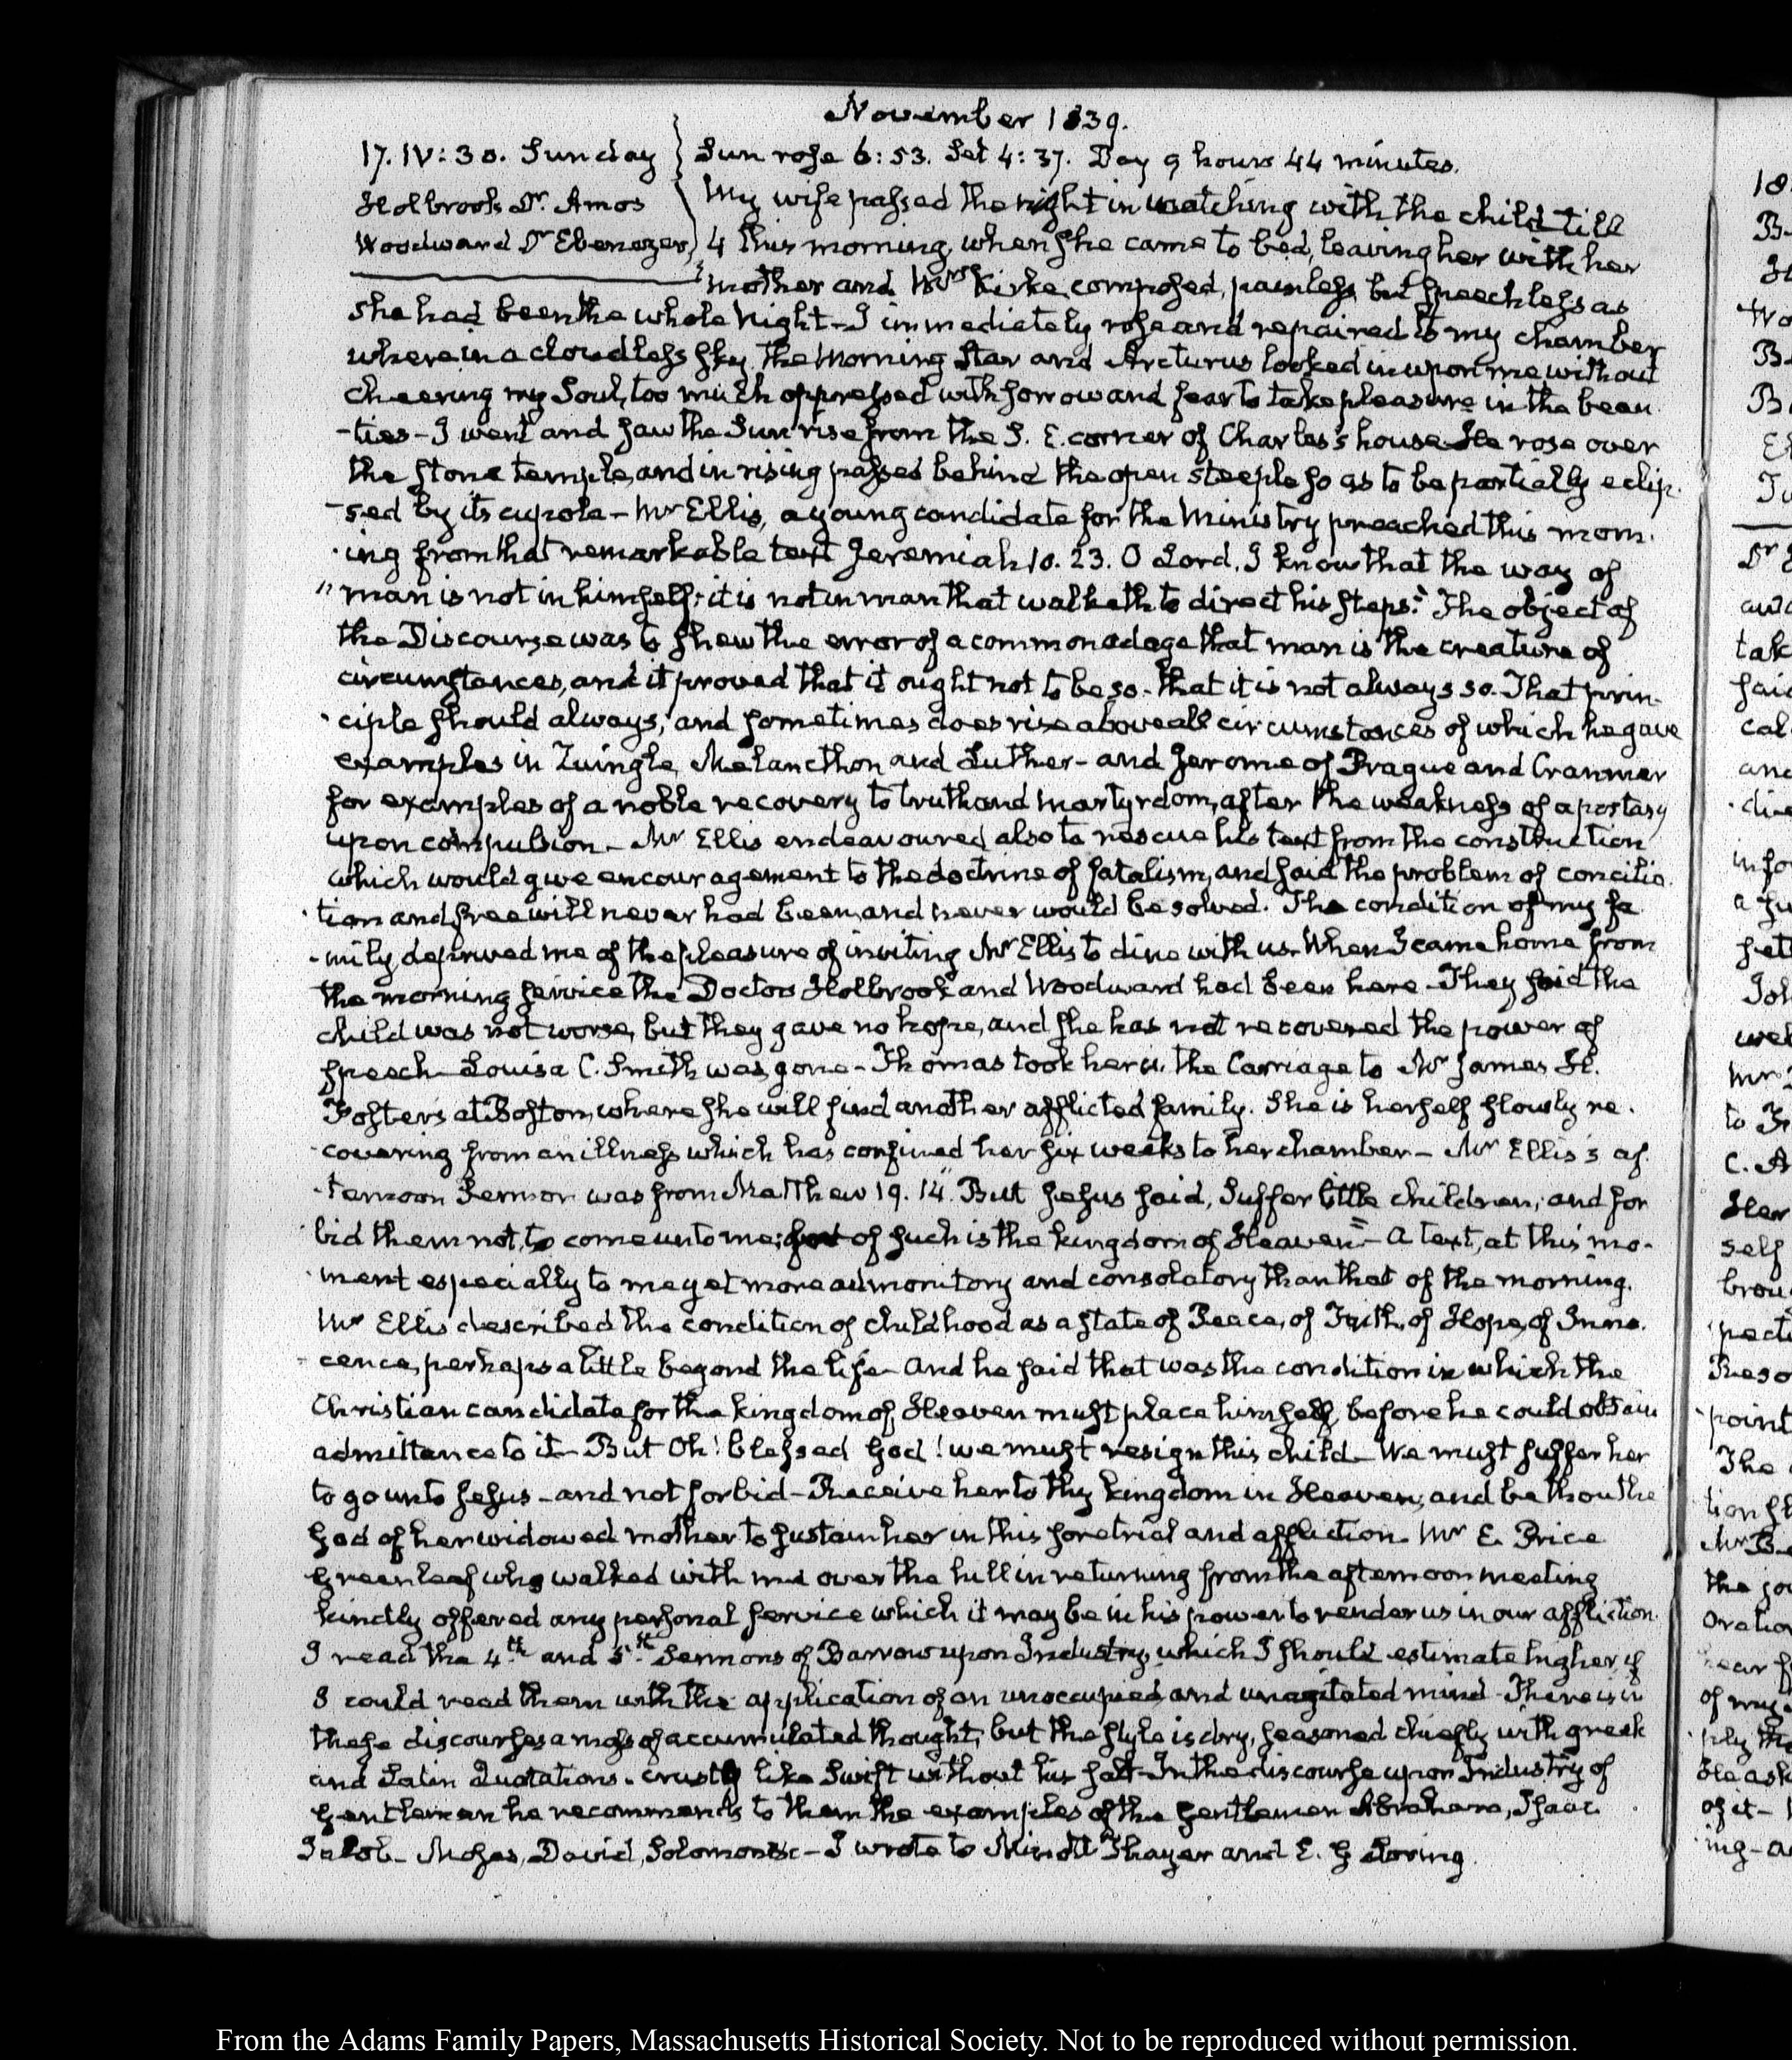 November 1839.
17. IV: 30. Sunday
Holbrook Dr. Amos
Woodward Dr Ebenezer
Sun rose 6: 53. Set 4: 37. Day 9 hours 44 minutes.
My wife passed the night in watching with the child till
4 this morning, when she came to bed, leaving her with her
mother and Mrs Kirke, composed, painless, but speechless as
she had been the whole Night – I immediately rose and repaired to my chamber
where in a cloudless sky, the Morning Star and Arcturus looked in upon me without
cheering my Soul, too much oppressed with sorrow and fear to take pleasure in the beau
-ties – I went and saw the Sun rise from the S. E. corner of Charles's house He rose over
the stone temple, and in rising passed behind the open steeple so as to be partially eclip-
-sed by its cupola – Mr Ellis, a young candidate for the Ministry preached this morn-
-ing from that remarkable text Jeremiah 10. 23. O Lord, I know that the way of
"man is not in himself; it is not in man that walketh to direct his steps." The object of
the Discourse was to shew the error of a common adage that man is the creature of
circumstances, and it proved that it ought not to be so – that it is not always so. That prin-
-ciple should always, and sometimes does rise above all circumstances of which he gave
examples in Zuingle, Melancthon and Luther – and Jerome of Prague and Cranmer
for examples of a noble recovery to truth and martyrdom, after the weakness of apostasy
upon compulsion – Mr Ellis endeavoured also to rescue his text from the construction
which would give encouragement to the doctrine of fatalism, and said the problem of concilia-
-tion and free will never had been, and never would be solved. The condition of my fa
-mily, deprived me of the pleasure of inviting Mr Ellis to dine with us. When I came home from
the morning service the Doctors Holbrook and Woodward had been here – They said the
child was not worse, but they gave no hope, and she has not recovered the power of
speech – Louisa C. Smith was gone – Thomas took her in the Carriage to Mr James H.
Foster's at Boston, where she will find another afflicted family. She is herself slowly re-
-covering from an illness which has confined her six weeks to her chamber – Mr Ellis's af-
-ternoon Sermon was from Matthew 19. 14. "But Jesus said, Suffer little children, and for
bid them not, to come unto me; for of such is the kingdom of Heaven" – A text, at this mo-
-ment especially to me yet more admonitory and consolatory than that of the morning.
Mr Ellis described the condition of childhood as a state of Peace, of Faith, of Hope, of Inno-
-cence, perhaps a little beyond the life – And he said that was the condition in which the
Christian candidate for the kingdom of Heaven must place himself, before he could obtain
admittance to it – But Oh! blessed God! we must resign this child – We must suffer her
to go unto Jesus – and not forbid – Receive her to thy kingdom in Heaven; and be thou the
God of her widowed mother to sustain her in this sore trial and affliction. Mr E. Price
Greenleaf who walked with me over the hill in returning from the afternoon meeting
kindly offered any personal service which it may be in his power to render us in our affliction.
I read the 4th and 5th Sermons of Barrow upon Industry, which I should estimate higher if
I could read them with the application of an unoccupied and unagitated mind – There is in
these discourses a mass of accumulated thought, but the style is dry, seasoned chiefly with greek
and Latin Quotations. crusty like Swift without his salt – In the discourse upon Industry of
Gentlemen he recommends to them the examples of the gentlemen Abraham, Isaac
Jacob – Moses, David, Solomon &c – I wrote to Minott Thayer and E. G Loring.
From the Adams Family Papers, Massachusetts Historical Society. Not to be reproduced without permission.